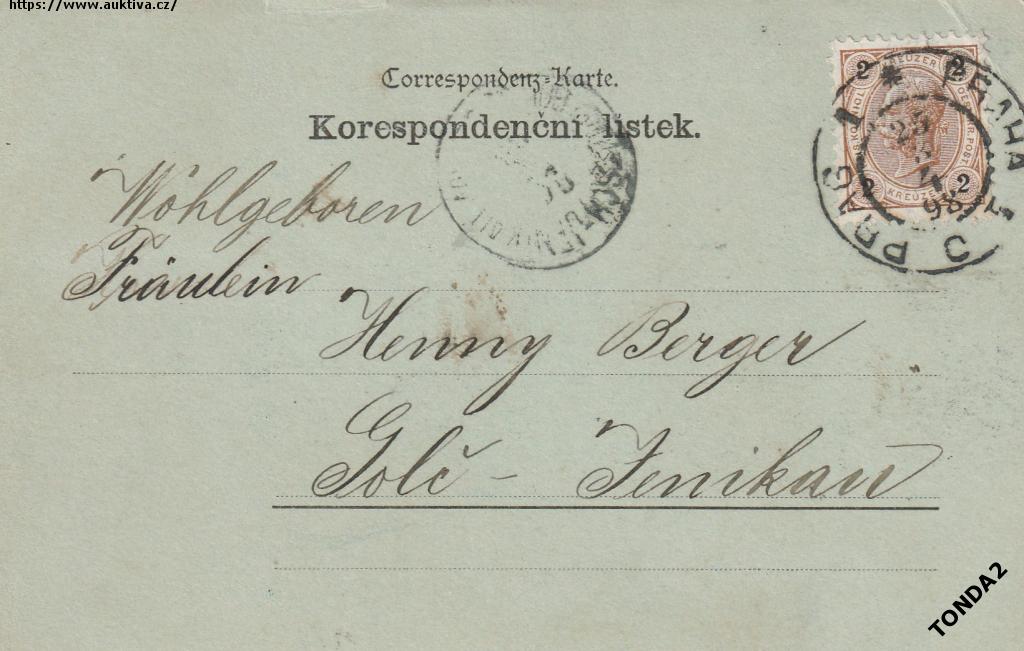 https://www.auktiva.cz/
Correspondenz-Karte.
Korespondenční lístek.
2 KREUZER 2
2 KREUZER 2
PRAG 1 * PRAHA 1
98
Wohlgeboren
Fräulein
Henny Berger
Golč - Jenikau
TONDA2